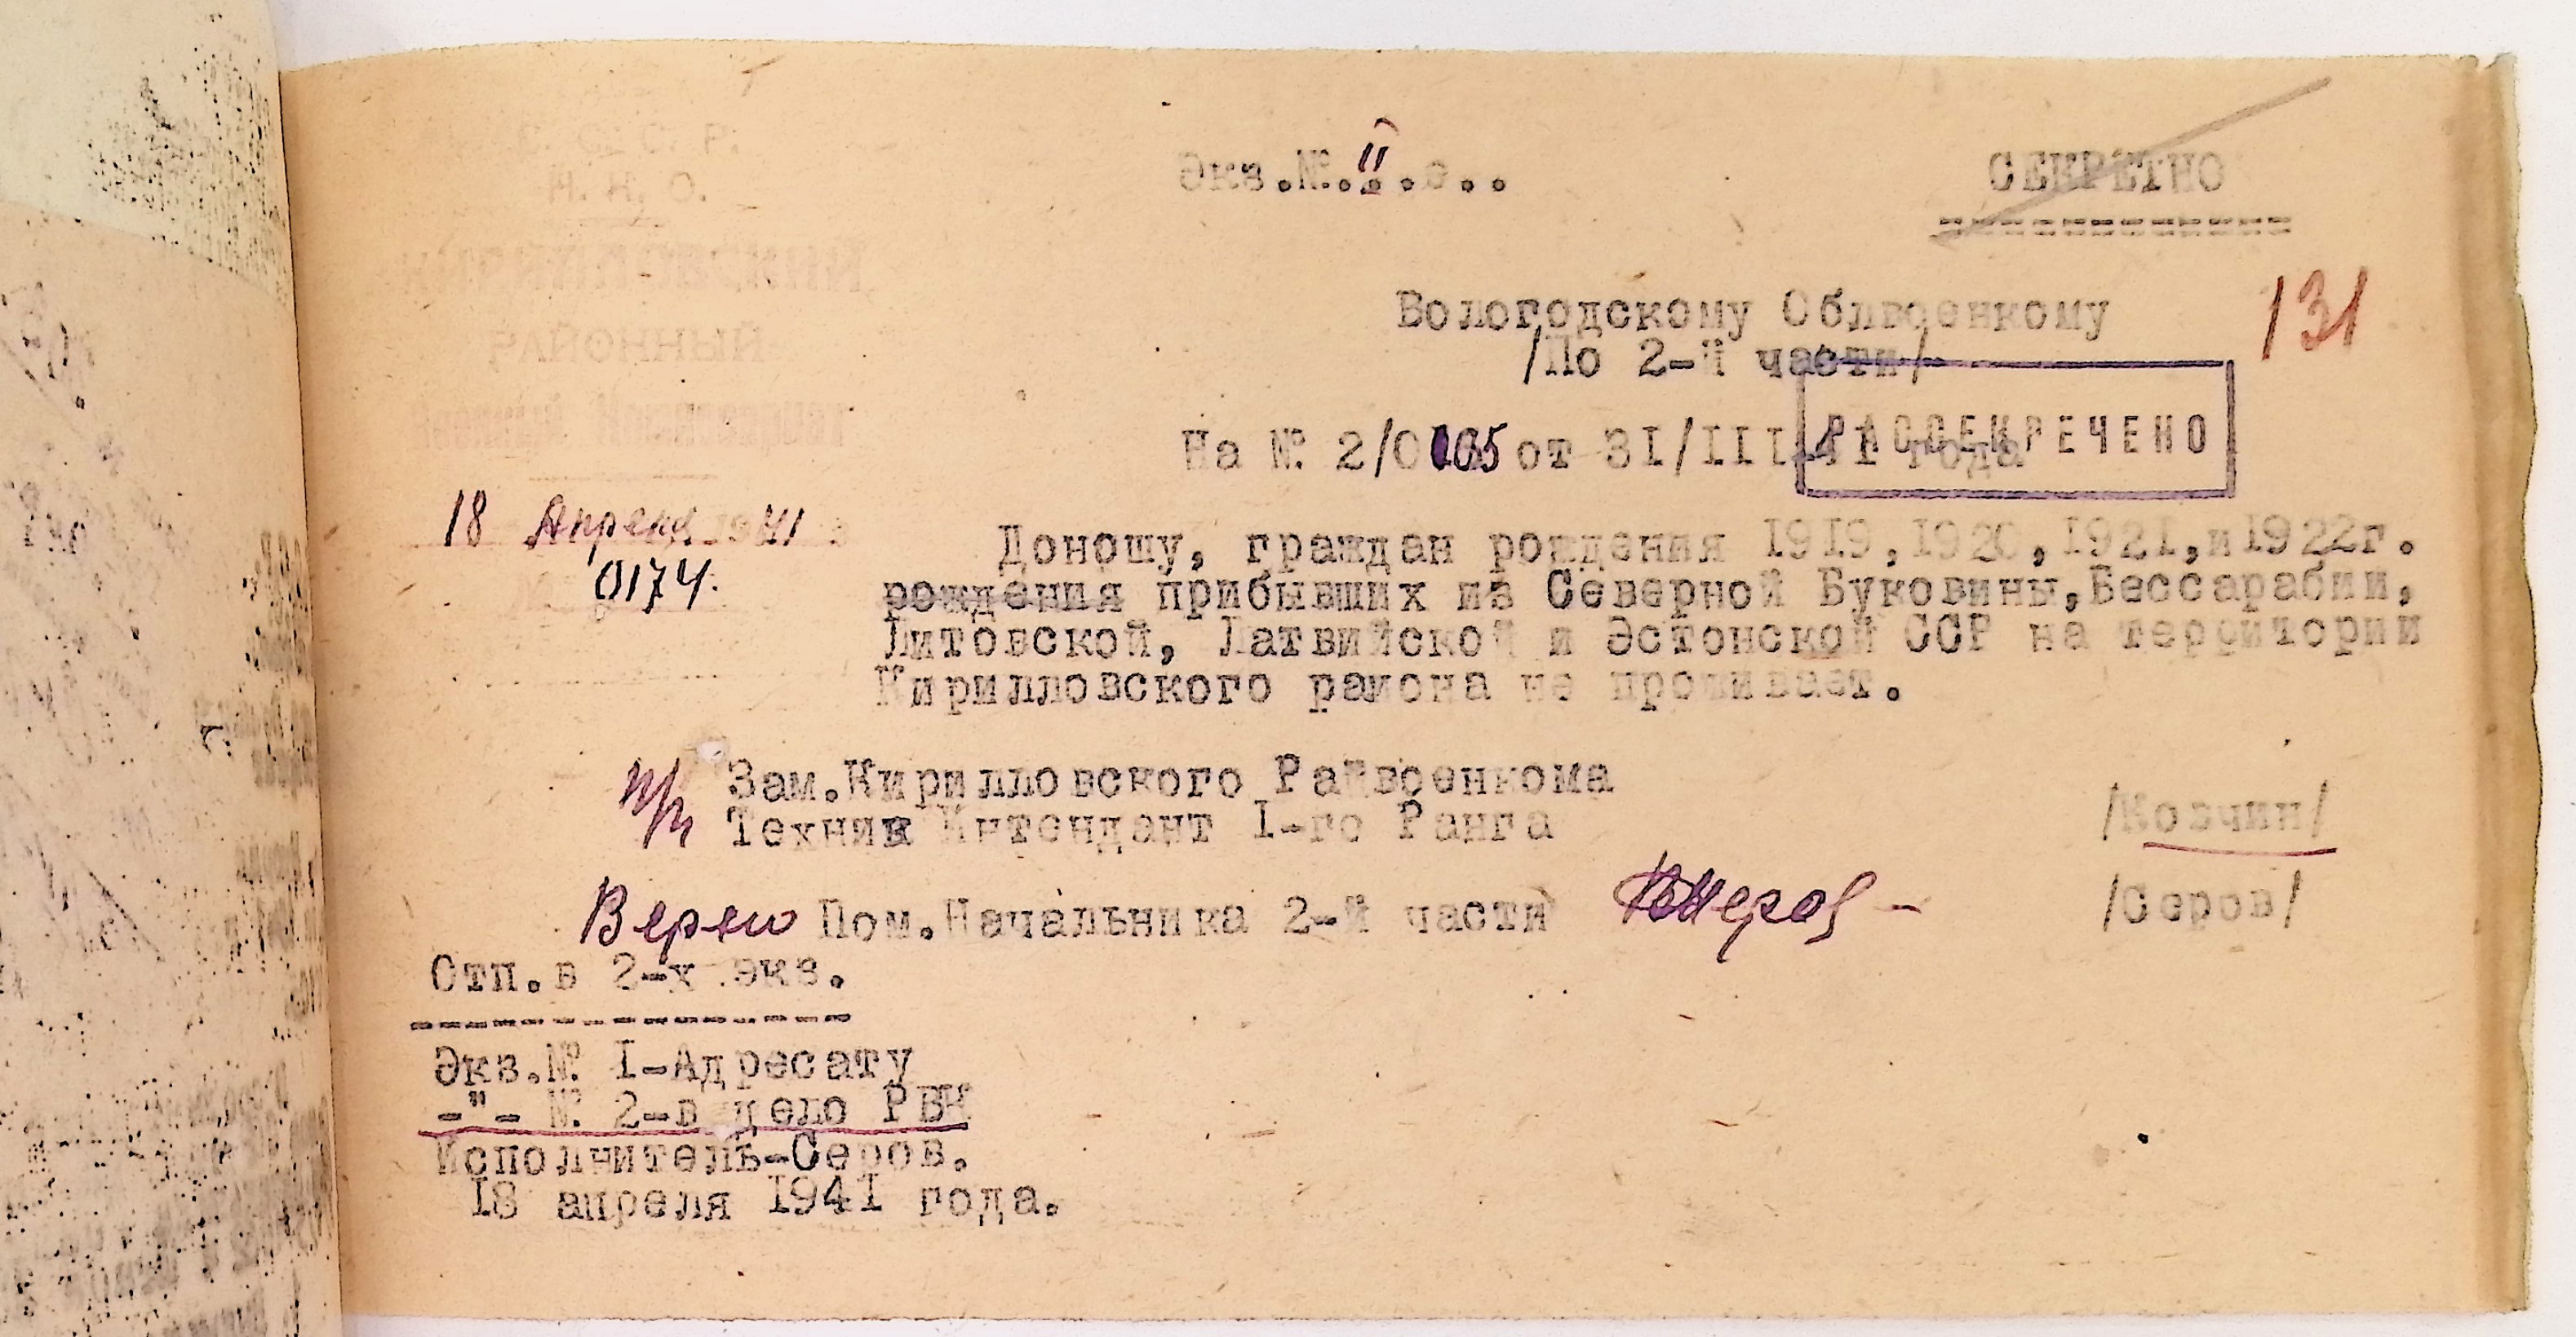 Экз.№.II.э..
СЕКРЕТНО
131
Вологодскому Облвоенкому
/По 2-й части/
РАССЕКРЕЧЕНО
На № 2/0165 от 31/III-41 года
18 Апреля 1941
0174.
Доношу, граждан рождения 1919,1920,1921,и 1922г.
рождения прибывших из Северной Буковины,Бессарабии,
Литовской, Латвийской и Эстонской ССР на территории
Кирилловского района не проживает.
п/п Зам.Кирилловского Райвоенкома
Техник Интендант I-го Ранга /Ковчин/
Верно Пом.Начальника 2-й части /Серов/
Отп.в 2-х экз.
Экз.№ I-Адресату
-"- № 2-в дело РВК
Исполнитель-Серов.
18 апреля 1941 года.